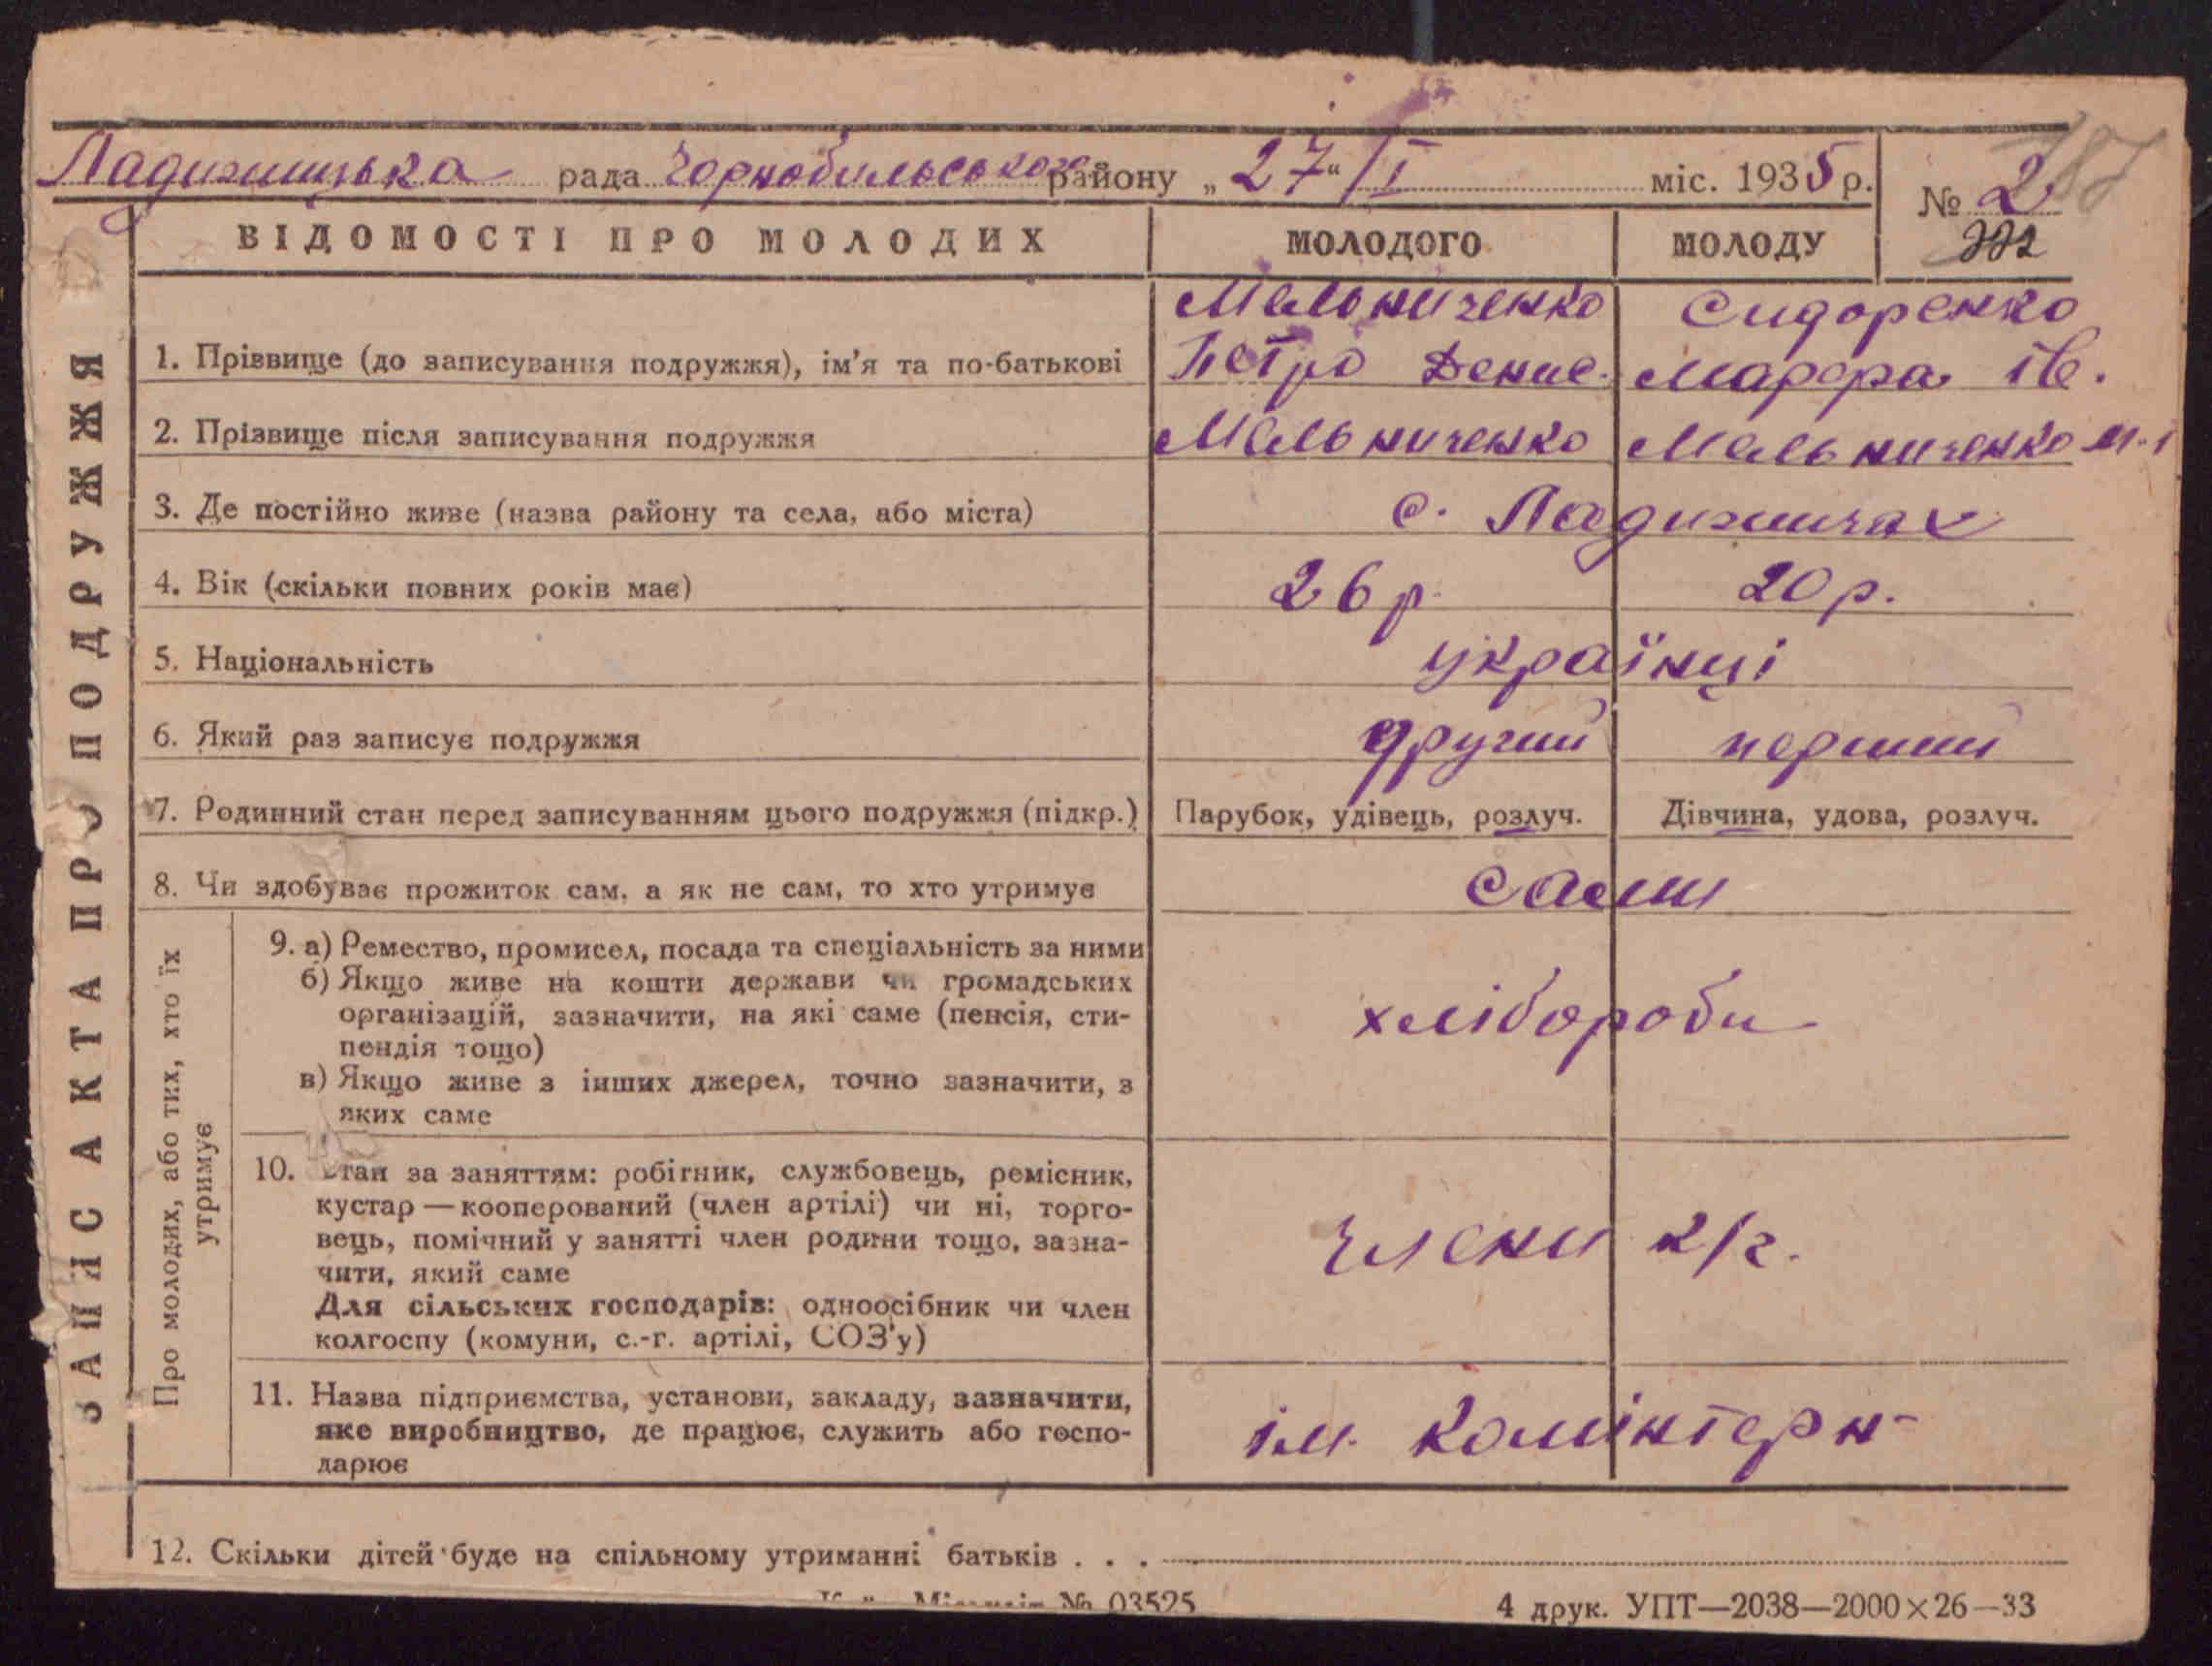 Ладижицька рада Чорнобильського району „27“/I міс. 1935 р.
№ 2
187
ВІДОМОСТІ ПРО МОЛОДИХ
МОЛОДОГО
МОЛОДУ
ЗАПИС АКТА ПРО ПОДРУЖЖЯ
1. Прізвище (до записування подружжя), ім’я та по-батькові
Мельниченко
Петро Денис.
Сидоренко
Марфа Ів.
2. Прізвище після записування подружжя
Мельниченко
Мельниченко М. І
3. Де постійно живе (назва району та села, або міста)
с. Ладижичах
4. Вік (скільки повних років має)
26 р.
20 р.
5. Національність
українці
6. Який раз записує подружжя
другий
перший
7. Родинний стан перед записуванням цього подружжя (підкр.)
Парубок, удівець, розлуч.
Дівчина, удова, розлуч.
8. Чи здобуває прожиток сам, а як не сам, то хто утримує
сами
Про молодих, або тих, хто їх
утримує
9. а) Ремество, промисел, посада та спеціальність за ними
б) Якщо живе на кошти держави чи громадських
організацій, зазначити, на які саме (пенсія, сти-
пендія тощо)
в) Якщо живе з інших джерел, точно зазначити, з
яких саме
хлібороби
10. Стан за заняттям: робітник, службовець, ремісник,
кустар — кооперований (член артілі) чи ні, торго-
вець, помічний у занятті член родини тощо, зазна-
чити, який саме
Для сільських господарів: одноосібник чи член
колгоспу (комуни, с.-г. артілі, СОЗ’у)
члени к/г.
11. Назва підприємства, установи, закладу, зазначити,
яке виробництво, де працює, служить або госпо-
дарює
ім. Комінтерн
12. Скільки дітей буде на спільному утриманні батьків . . .
№ 03525
4 друк. УПТ—2038—2000×26—33